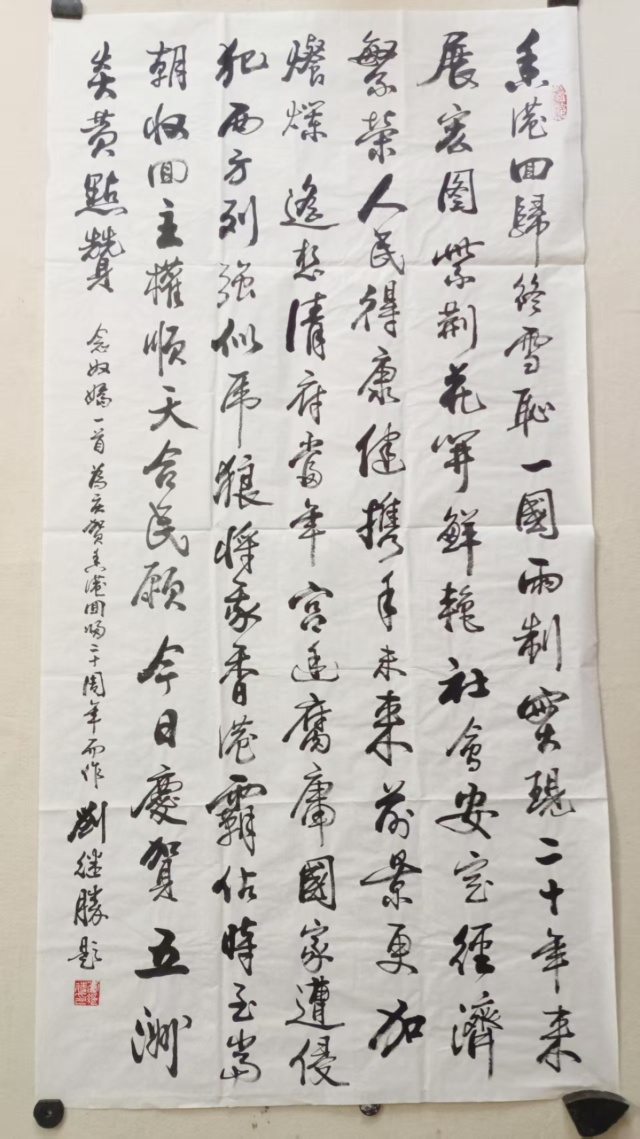 香港回歸終雪恥一國兩制實現二十年来
展宏图紫荆花開鮮艳社會安定經濟
繁榮人民得康健携手未来前景更加
燦爛遙想清府當年宫廷腐庸國家遭侵
犯西方列强似虎狼將我香港霸佔時至當
朝收回主權順天合民願今日慶賀五洲
炎黄點贊
念奴嬌一首為庆贺香港回归二十周年而作
劉继勝題